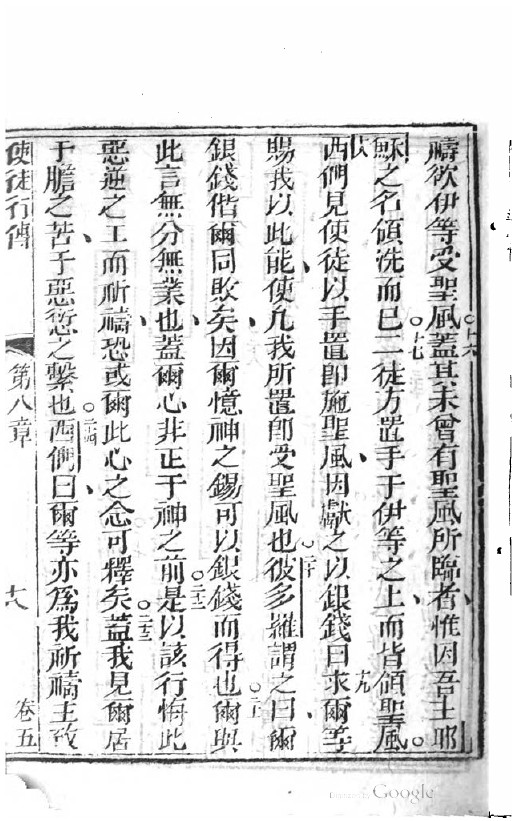 禱欲伊等受聖風○十六蓋其未曾有聖風所臨者惟因吾主耶
穌之名領洗而已○十七二徒方置手于伊等之上而皆領聖風○
十八西們見使徒以手置卽施聖風因獻之以銀錢曰十九求爾等
賜我以此能使凡我所置卽受聖風也○二十彼多羅謂之曰爾
銀錢偕爾同敗矣因爾憶神之錫可以銀錢而得也○二一爾與
此言無分無業也蓋爾心非正于神之前○二二是以該行悔此
惡逆之工而祈禱恐或爾此心之念可釋矣○二三蓋我見爾居
于膽之苦于惡愆之繫也○二四西們曰爾等亦爲我祈禱主致
使徒行傳 第八章 十八 卷五
Digitized by Google